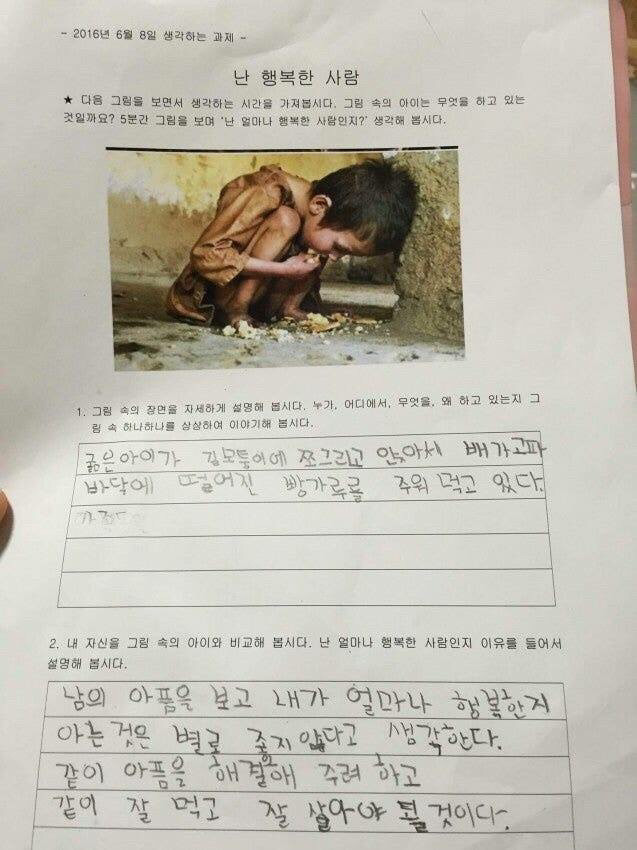 - 2016년 6월 8일 생각하는 과제 -
난 행복한 사람
★ 다음 그림을 보면서 생각하는 시간을 가져봅시다. 그림 속의 아이는 무엇을 하고 있는
것일까요? 5분간 그림을 보며 '난 얼마나 행복한 사람인지?' 생각해 봅시다.
1. 그림 속의 장면을 자세하게 설명해 봅시다. 누가, 어디에서, 무엇을, 왜 하고 있는지 그
림 속 하나하나를 상상하여 이야기해 봅시다.
굶은아이가 길모퉁이에 쪼그리고 앉아서 배가고파
바닥에 떨어진 빵가루를 주워 먹고 있다.
2. 내 자신을 그림 속의 아이와 비교해 봅시다. 난 얼마나 행복한 사람인지 이유를 들어서
설명해 봅시다.
남의 아픔을 보고 내가 얼마나 행복한지
아는것은 별로 좋지 않다고 생각한다.
같이 아픔을 해결해 주려 하고
같이 잘 먹고 잘 살아야 될 것이다.